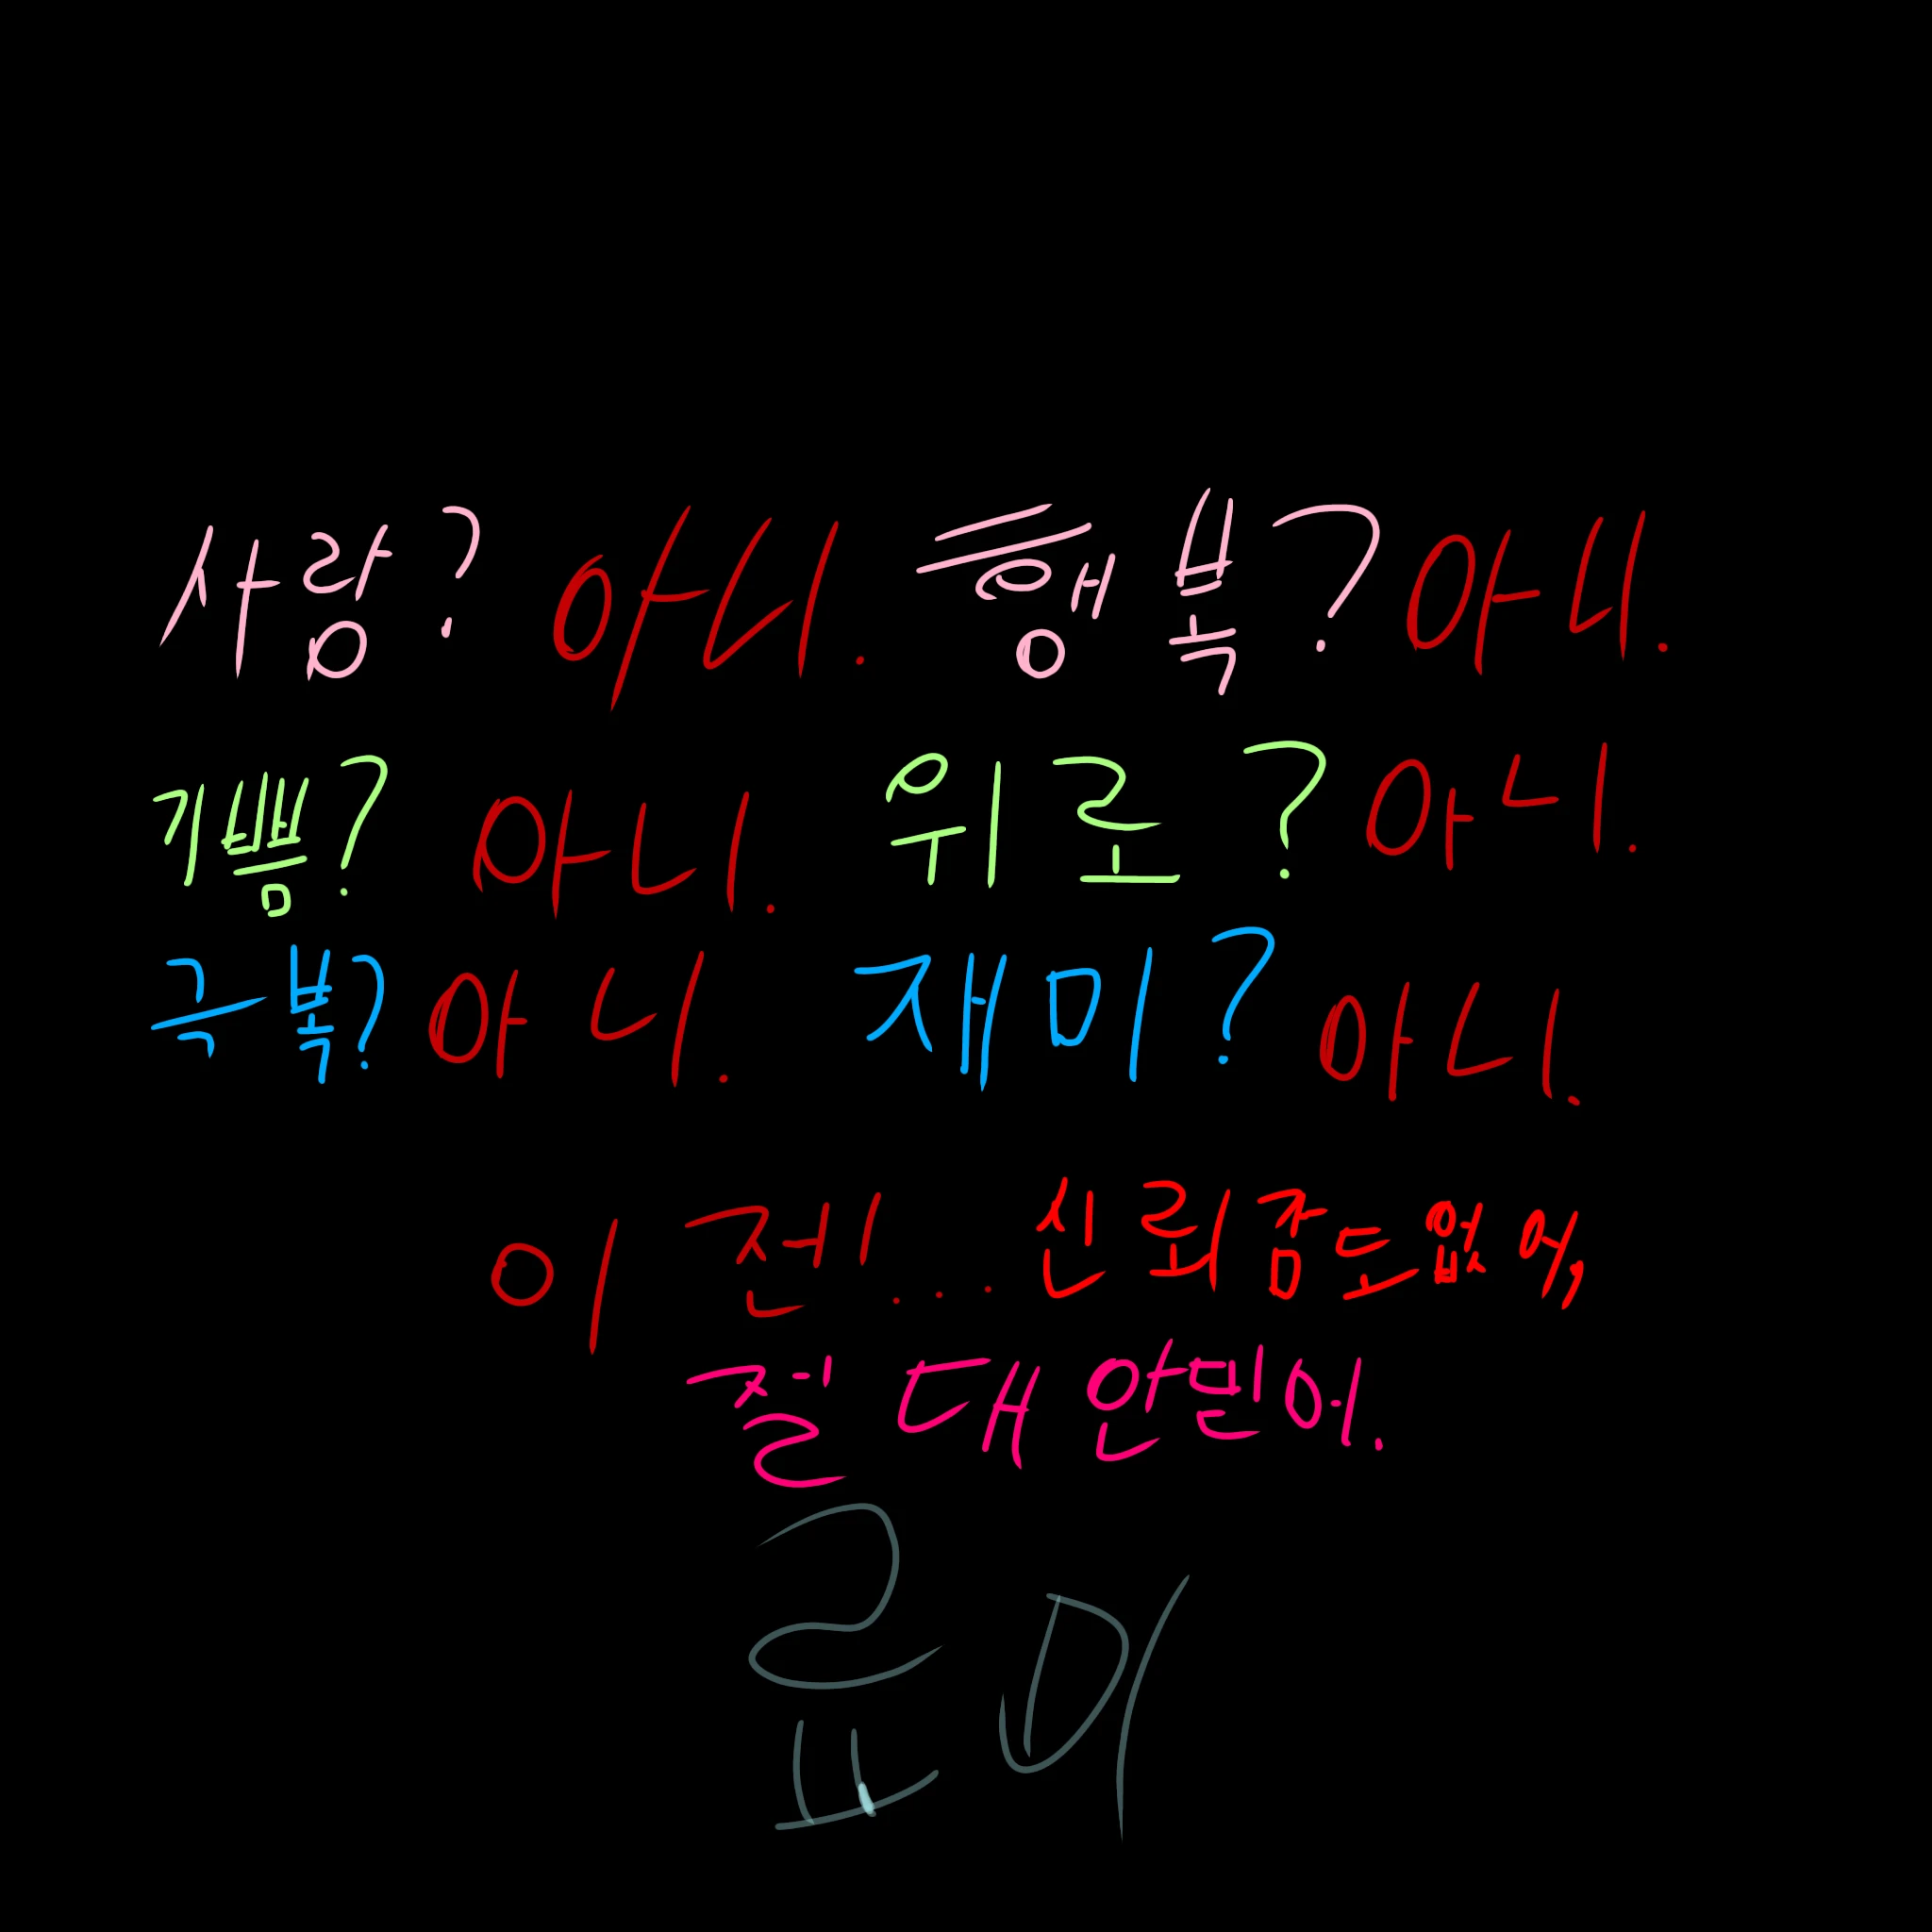 사랑? 아니. 행복? 아니.
기쁨? 아니. 위로? 아니.
극복? 아니. 재미? 아니.
이 전... 신뢰감도 없에,
절대 안믿어.
료미